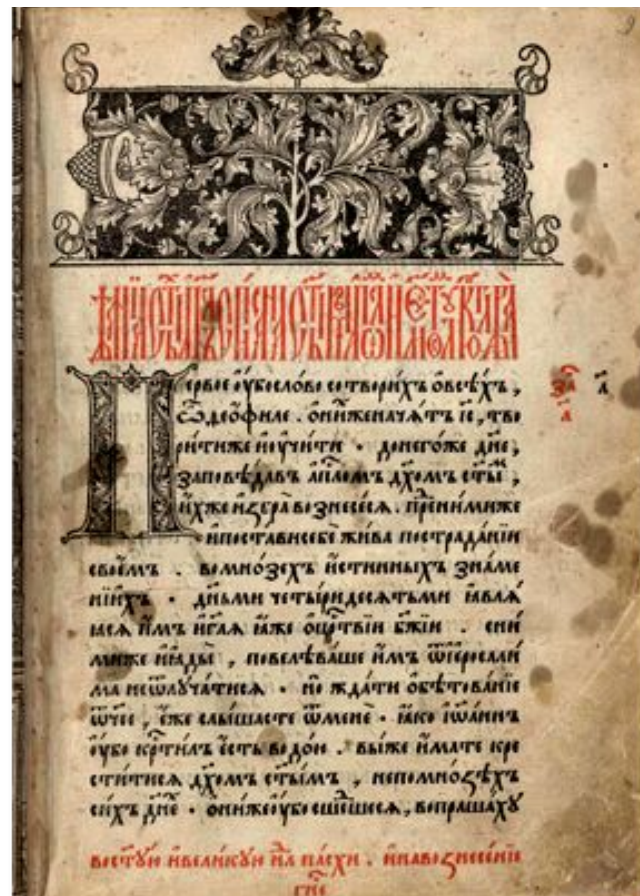 първое ᲂу҆бо сло́во сотвори́хъ ѻ҆ всѣ́хъ,
ѽ, део́филе. ѻ҆ ни́хже нача́тъ і҆с, тво
ри́ти же и҆ ᲂу҆чи́ти. до него́же дн҃е,
заповѣ́давъ а҆пⷭ҇ломъ дх҃омъ ст҃ы́мⸯ,
и҆́хже и҆збра̀ вознесе́сѧ. пред ни́миже
и҆ поста́ви себѐ жи́ва по страда́нїи
свое́мъ. во мно́зехъ и҆́стинныхъ зна́ме
нїихъ. дньмѝ четы́ридесѧтьми ꙗ҆влѧ́
ꙗсѧ и҆̀мъ и҆ гл҃ѧ ꙗ҆́же ѻ҆ црⷭ҇твїи бж҃їи. с ни́
миже и҆ ꙗ҆ды̀, повелѣва́ше и҆̀мъ ѿ і҆єросали́
ма не ѿлꙋча́тисѧ. но жда́ти ѻ҆бѣтова́нїе
ѻ҆́ч҃ее, є҆́же слы́шасте ѿ менѐ. ꙗ҆́ко і҆ѡа́ннъ
ᲂу҆́бо крⷭ҇ти́лъ є҆́сть водо́ю. вы́ же и҆́мате кре
сти́тисѧ дх҃омъ ст҃ы́мъ, не по мно́ѕѣхъ
си́хъ дн҃е. ѻ҆ни́ же ᲂу҆́бо сше́дшесѧ, вопраша́хꙋ
во ст҃ꙋ́ю и҆ вели́кꙋю нлⷣѧ па́схи. и҆ на вознесе́нїе
гн҃е